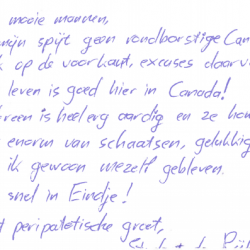 mooie mannen,
mijn spijt geen rondborstige Can
k op de voorkant, excuses daarv
leven is goed hier in Canada!
reen is heel erg aardig en ze hou
enorm van schaatsen, gelukkig
ik gewoon mezelf gebleven.
snel in Eindje!
t peripatetische groet,